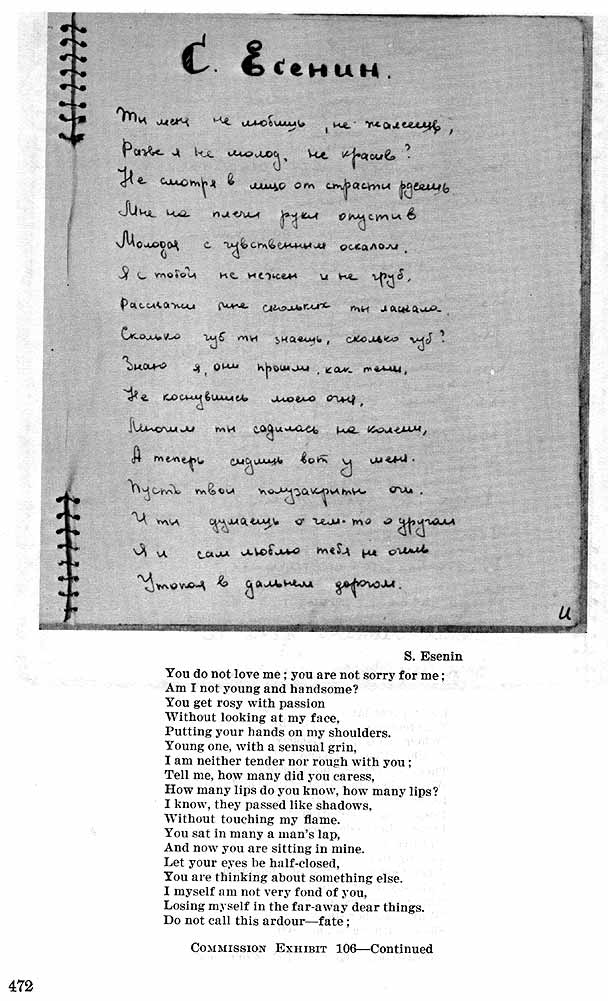 С. Есенин.
Ты меня не любишь, не жалеешь,
Разве я не молод, не красив?
Не смотря в лицо от страсти рдеешь
Мне на плечи руки опустив
Молодая с чувственным оскалом,
Я с тобой не нежен и не груб,
Расскажи мне скольких ты ласкала.
Сколько губ ты знаешь, сколько губ?
Знаю я, они прошли, как тени,
Не коснувшись моего огня,
Многим ты садилась на колени,
А теперь сидишь вот у меня.
Пусть твои полузакрыты очи.
И ты думаешь о чем-то о другом
Я и сам люблю тебя не очень
Утопая в дальнем дорогом.
S. Esenin
You do not love me; you are not sorry for me;
Am I not young and handsome?
You get rosy with passion
Without looking at my face,
Putting your hands on my shoulders.
Young one, with a sensual grin,
I am neither tender nor rough with you;
Tell me, how many did you caress,
How many lips do you know, how many lips?
I know, they passed like shadows,
Without touching my flame.
You sat in many a man's lap,
And now you are sitting in mine.
Let your eyes be half-closed,
You are thinking about something else.
I myself am not very fond of you,
Losing myself in the far-away dear things.
Do not call this ardour—fate;
COMMISSION EXHIBIT 106—Continued
472